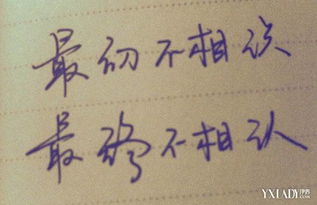 最初不相识
最终不相认
YXLADY.COM